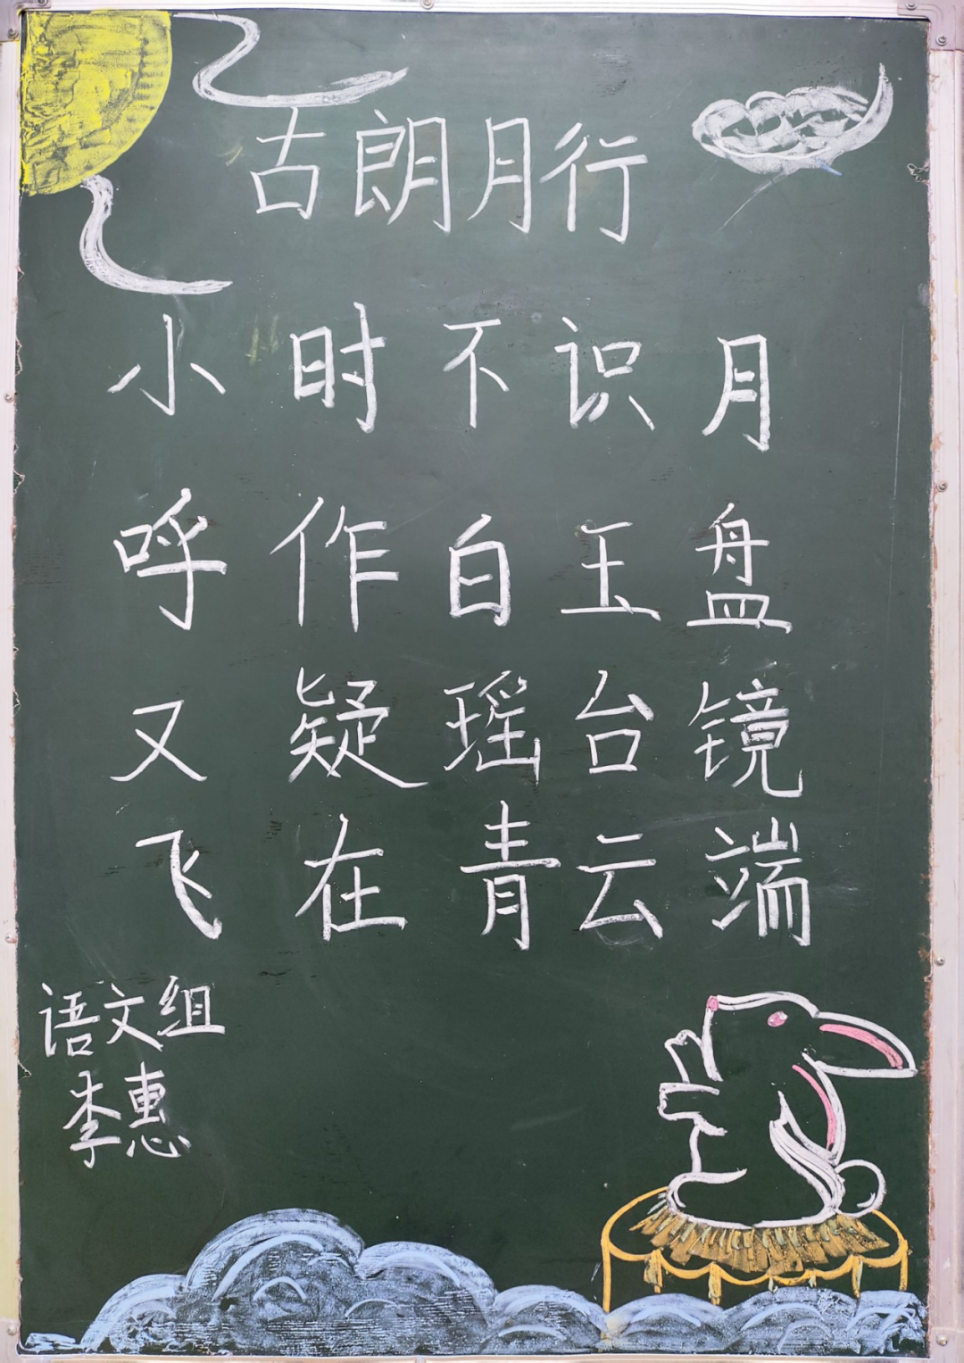 古朗月行
小时不识月
呼作白玉盘
又疑瑶台镜
飞在青云端
语文组
李惠